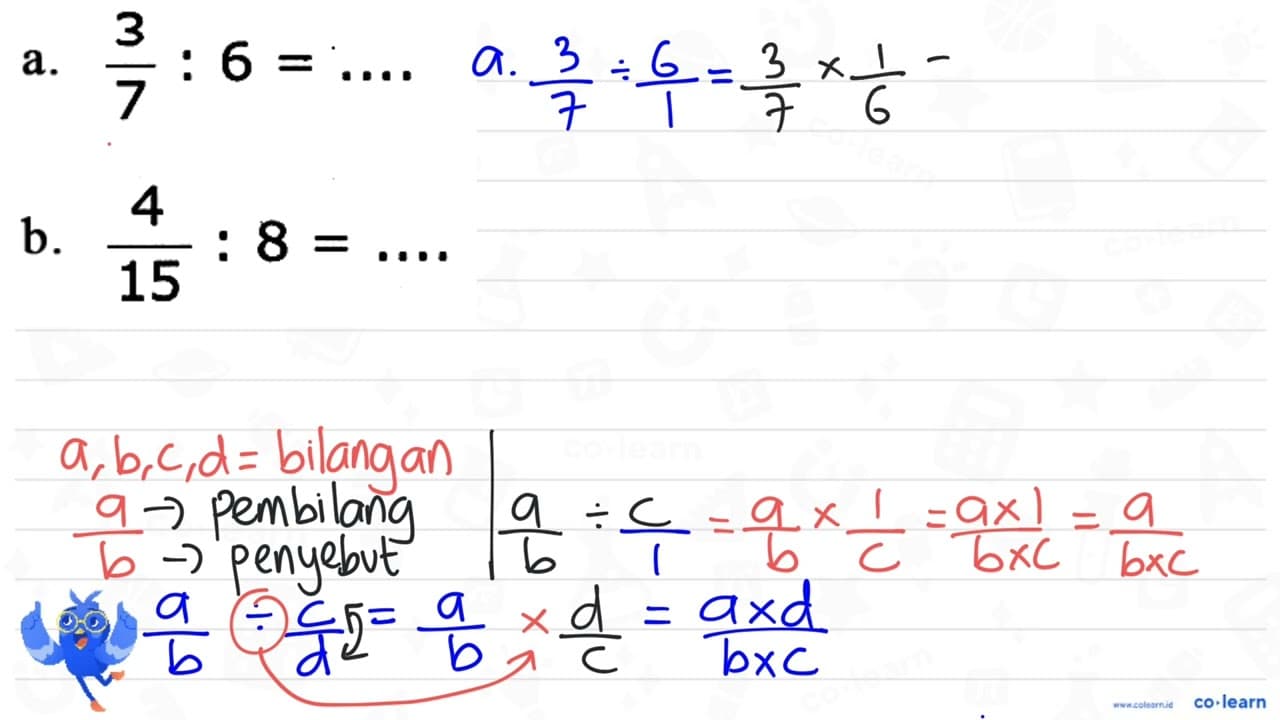 a. 3/7 : 6 = ....
a. 3/7 ÷ 6/1 = 3/7 × 1/6 -
b. 4/15 : 8 = ....
a, b, c, d = bilangan
a/b → pembilang
→ penyebut
a/b ÷ c/1 = a/b × 1/c = a×1/b×c = a/b×c
a/b ÷ c/d = a/b × d/c = a×d/b×c
www.colearn.id
co·learn